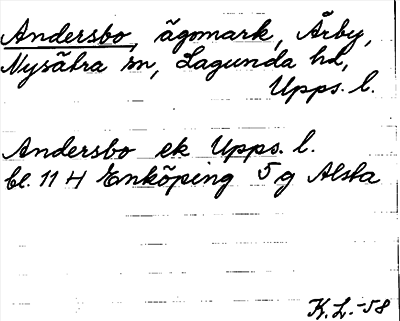 Andersbo, ägomark, Årby,
Nysätra sn, Lagunda hd,
Upps. l.
Andersbo ek Upps. l.
bl. 11 H Enköping 5 g Alsta
K.L.-58